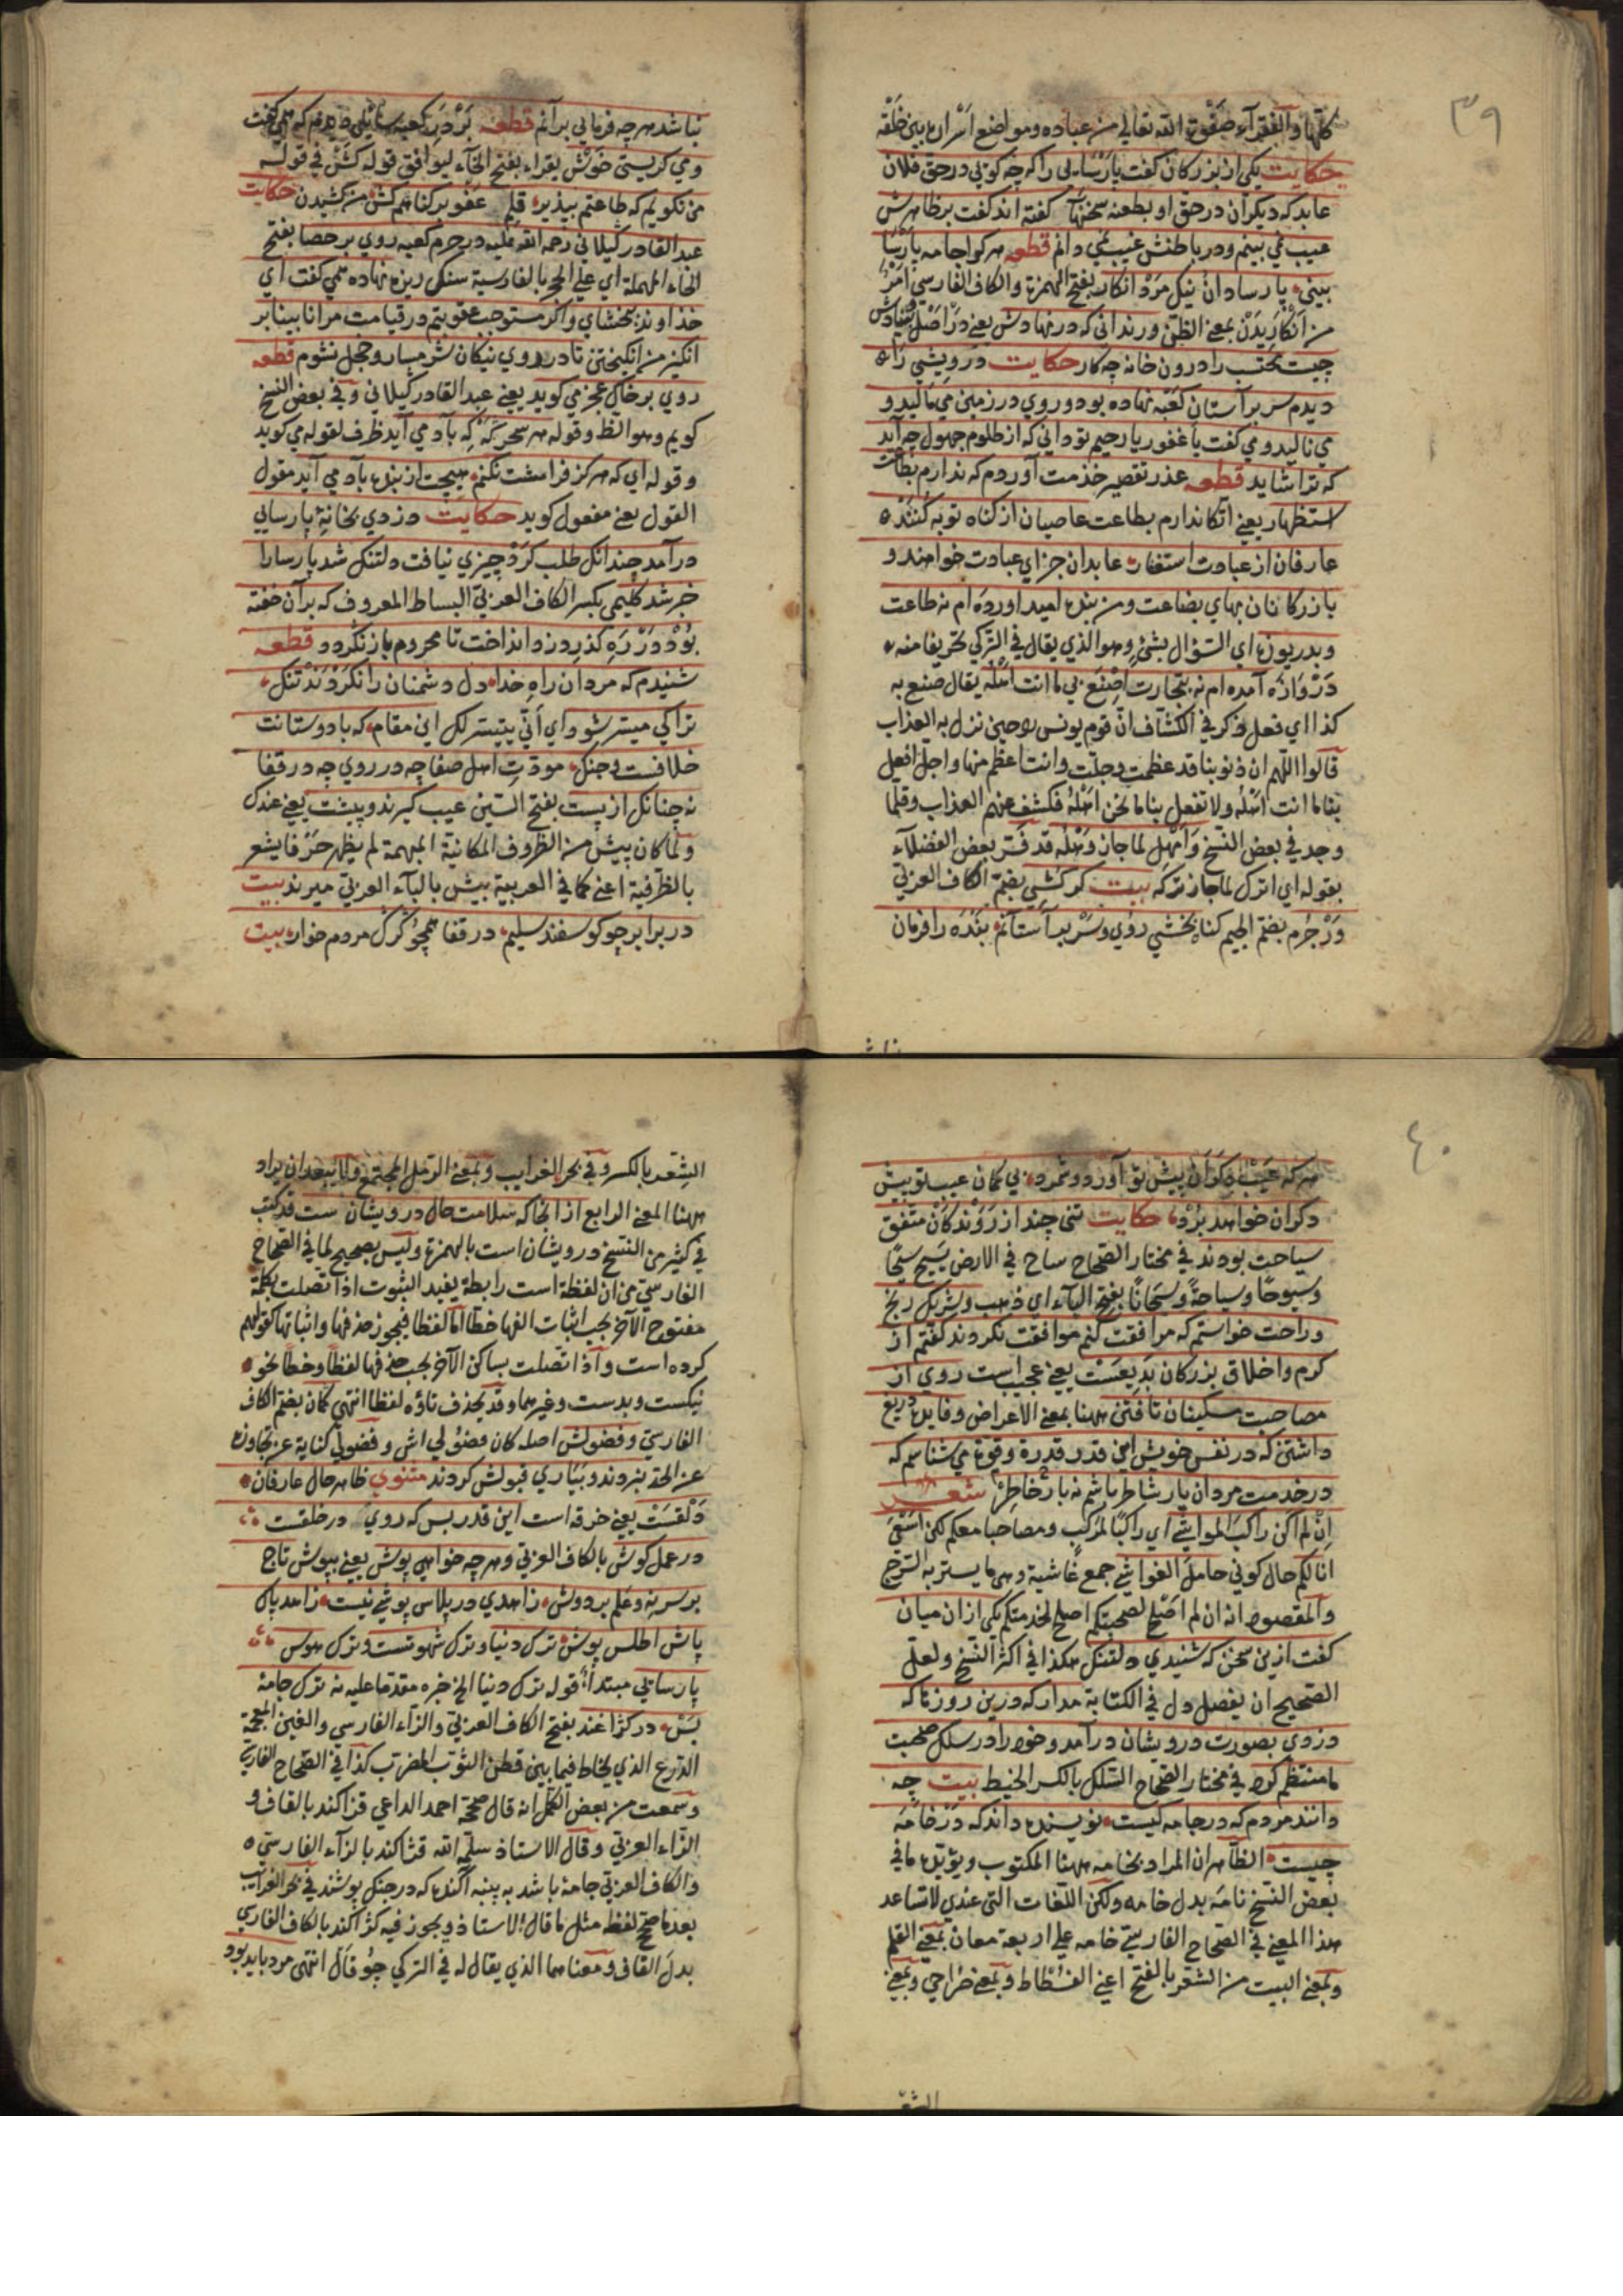 ٣٩
كلها والفقرآء صفوة الله تعالي من عباده ومواضع اسراره بين خلقه
حكايت يكي از بزركان كفت پارسايي را كه چه كوئي در حق فلان
عابد كه ديكران در حق او بطعنه سخنها كفته اند كفت بر ظاهرش
عيب نمي بينم ودر باطنش غيب نمي دانم قطعه هر كرا جامه پارسا
بيني پارسا دان نيك مرد انكار بفتح الهمزة والكاف الفارسي امر
من انكاريدن بمعني الظن ورنداني كه در نهادش يعني در اصل بنيادش
چيست محتسب را درون خانه چه كار حكايت درويشي را
ديدم سر بر آستان كعبه نهاده بود وروي در زمين مي ماليد و
مي ناليد ومي كفت يا غفور يا رحيم تو داني كه از ظلوم جهول چه آيد
كه ترا شايد قطعه عذر تقصير خدمت آوردم كه ندارم بطاعت
استظهار يعني اتكا ندارم بطاعت عاصيان از كناه توبه كنند
عارفان از عبادت استغفار عابدان جزاي عبادت خواهند و
بازركانان بهاي بضاعت ومن بنده اميد اورده ام نه طاعت
وبدريوزه اي السؤال بشئ وهو الذي يقال في التركي تحريفا منه
دروازه آمده ام نه بتجارت اصنع بي ما انت اهله يقال صنع به
كذا اي فعل وذكر في الكشاف ان قوم يونس حين نزل به العذاب
قالوا اللهم ان ذنوبنا قد عظمت وجلت وانت اعظم منها واجل افعل
بنا ما انت اهله ولا تفعل بنا ما نحن اهله فكشف عنهم العذاب وقلما
وجد في بعض النسخ وامهل لما جاز وهله قد فسر بعض الفضلاء
بقوله اي اترك لما جاز تركه بيت كر كشي بضم الكاف العربي
ور جرم بضم الجيم كناه بخشي روي وسر بر آستانم بنده را فرمان
نباشد هر چه فرمايي بر آنم قطعه بر در كعبه سائلي ديدم كه همي كفت
ومي كريستي خوش يقراء بفتح الخآء ليوافق قوله كش في قوله
من نكويم كه طاعتم بپذير قلم عفو بر كناهم كش من كشيدن حكايت
عبد القادر كيلاني رحمة الله عليه در حرم كعبه روي بر حصا بفتح
الحاء المهملة اي علي الحجر بالفارسية سنك ريزه نهاده همي كفت اي
خداوند ببخشاي واكر مستوجب عقوبتم در قيامت مرا نابينا بر
انكيز من انكيختن تا در روي نيكان شرمسار وخجل نشوم قطعه
روي بر خاك عجز مي كويد يعني عبد القادر كيلاني وفي بعض النسخ
كويم وهو الظ وقوله هر سحر كه كه باد مي آيد ظرف لقوله مي كويد
وقوله اي كه هركز فرامشت نكنم هيچت از بنده ياد مي آيد مقول
القول يعني مفعول كويد حكايت دزدي بخانه پارسايي
درآمد چندانك طلب كرد چيزي نيافت دلتنك شد پارسا را
خبر شد كليمي بكسر الكاف العربي البساط المعروف كه بر آن خفته
بود در ره كذر دزد انداخت تا محروم باز نكردد قطعه
شنيدم كه مردان راه خدا دل دشمنان را نكردند تنك
ترا كي ميسر شود اي أني يتيسر لك اين مقام كه با دوستانت
خلافست وجنك مودت اهل صفا چه در روي چه در قفا
نه چنانك از پست بفتح السين عيب كيرند وپيشت يعني عندك
ولما كان پيش من الظروف المكانية المبهمة لم يظهر حرفا يشعر
بالظرفية اعني كما في العربية بيش بالباء العربي ميرند بيت
در برابر چو كوسفند سليم در قفا همچو كرك مردم خوار بيت
٤٠
هر كه عيب دكران پيش تو آورد وشمرد بي كمان عيب تو پيش
دكران خواهد برد حكايت تني چند از روندكان متفق
سياحت بودند في مختار الصحاح ساح في الارض يسيح سيحا
وسيوحا وسياحة وسيحانا بفتح الياء اي ذهب وشريك رنج
وراحت خواستم كه مرافقت كنم موافقت نكردند كفتم از
كرم واخلاق بزركان بديعست يعني عجيب است روي از
مصاحبت مسكينان تافتن ههنا بمعني الاعراض وفايده دريغ
داشتن كه در نفس خويش اين قدر قدرة وقوة مي شناسم كه
در خدمت مردان يار شاطر باشم نه بار خاطر شعر
ان لم اكن راكب المواشي اي راكبا لمركب ومصاحبا معكم لكن اسعي
انا لكم حال كوني حامل الغواشي جمع غاشية وهي ما يستر به السرج
والمقصود انه ان لم اصلح لصحبتكم اصلح لخدمتكم يكي از ان ميان
كفت ازين سخن كه شنيدي دلتنك هكذا في اكثر النسخ ولعل
الصحيح ان يفصل دل في الكتابة مدار كه درين روزها كه
دزدي بصورت درويشان درآمد وخود را در سلك صحبت
ما منتظم كرد في مختار الصحاح السلك بالكسر الخيط بيت چه
دانند مردم كه در جامه كيست نويسنده داند كه در خامه
چيست الظاهر ان المراد بخامه ههنا المكتوب ويؤيده ما في
بعض النسخ نامه بدل خامه ولكن اللغات التي عندي لا تساعد
هذا المعني في الصحاح الفارسي خامه علي اربعة معان بمعني القلم
وبمعني البيت من الشعر بالفتح اعني الفسطاط وبمعني خراجي وبمعني
الشعر بالكسر وفي بحر الغرايب وبمعني الرمل المجتمع ولا يبعد ان يراد
ههنا المعني الرابع از انجا كه سلامت حال درويشان ست قد كتب
في كثير من النسخ درويشان است بالهمزة وليس بصحيح لما في الصحاح
الفارسي من ان لفظة است رابطة يفيد الثبوت اذا اتصلت بكلمة
مفتوح الآخر يجب اثبات الفها خطا اما لفظا فيجوز حذفها واثباتها كقولهم
كرده است واذا اتصلت بساكن الآخر يجب حذفها لفظا وخطا نحو
نيكست وبدست وغيرهما وقد يحذف تاؤه لفظا انتهي كمان بضم الكاف
الفارسي وفضولش اصله كان فضولي اش وفضولي كناية عن تجاوزه
عن الحد نبردند وبياري قبولش كردند مثنوي ظاهر حال عارفان
دلقست يعني خرقه است اين قدر بس كه روي در خلقست
در عمل كوش بالكاف العربي وهر چه خواهي پوش يعني بپوش تاج
بر سر نه وعلم بر دوش زاهدي در پلاس پوشي نيست زاهد پاك
باش اطلس پوش ترك دنيا وترك شهوتست وترك هوس
پارسائي مبتدأ قوله ترك دنيا الخ خبره مقدما عليه نه ترك جامه
بس در كژاغند بفتح الكاف العربي والزاء الفارسي والغين المعجمة
الدرع الذي يخاط فيما بين قطن الثوب المضرب كذا في الصحاح الفارسي
وسمعت من بعض الكمل انه قال صححه احمد الداعي قزاكند بالقاف و
الزاء العربي وقال الاستاذ سلمه الله قژاكند بالزاء الفارسي
والكاف العربي جامه باشد به پنبه آكنده كه در جنك پوشند في بحر الغرايب
بعد ما صحح لفظه مثل ما قال الاستاذ ويجوز فيه كژاكند بالكاف الفارسي
بدل القاف ومعناهما الذي يقال له في التركي چوقال انتهي مرد بايد بود